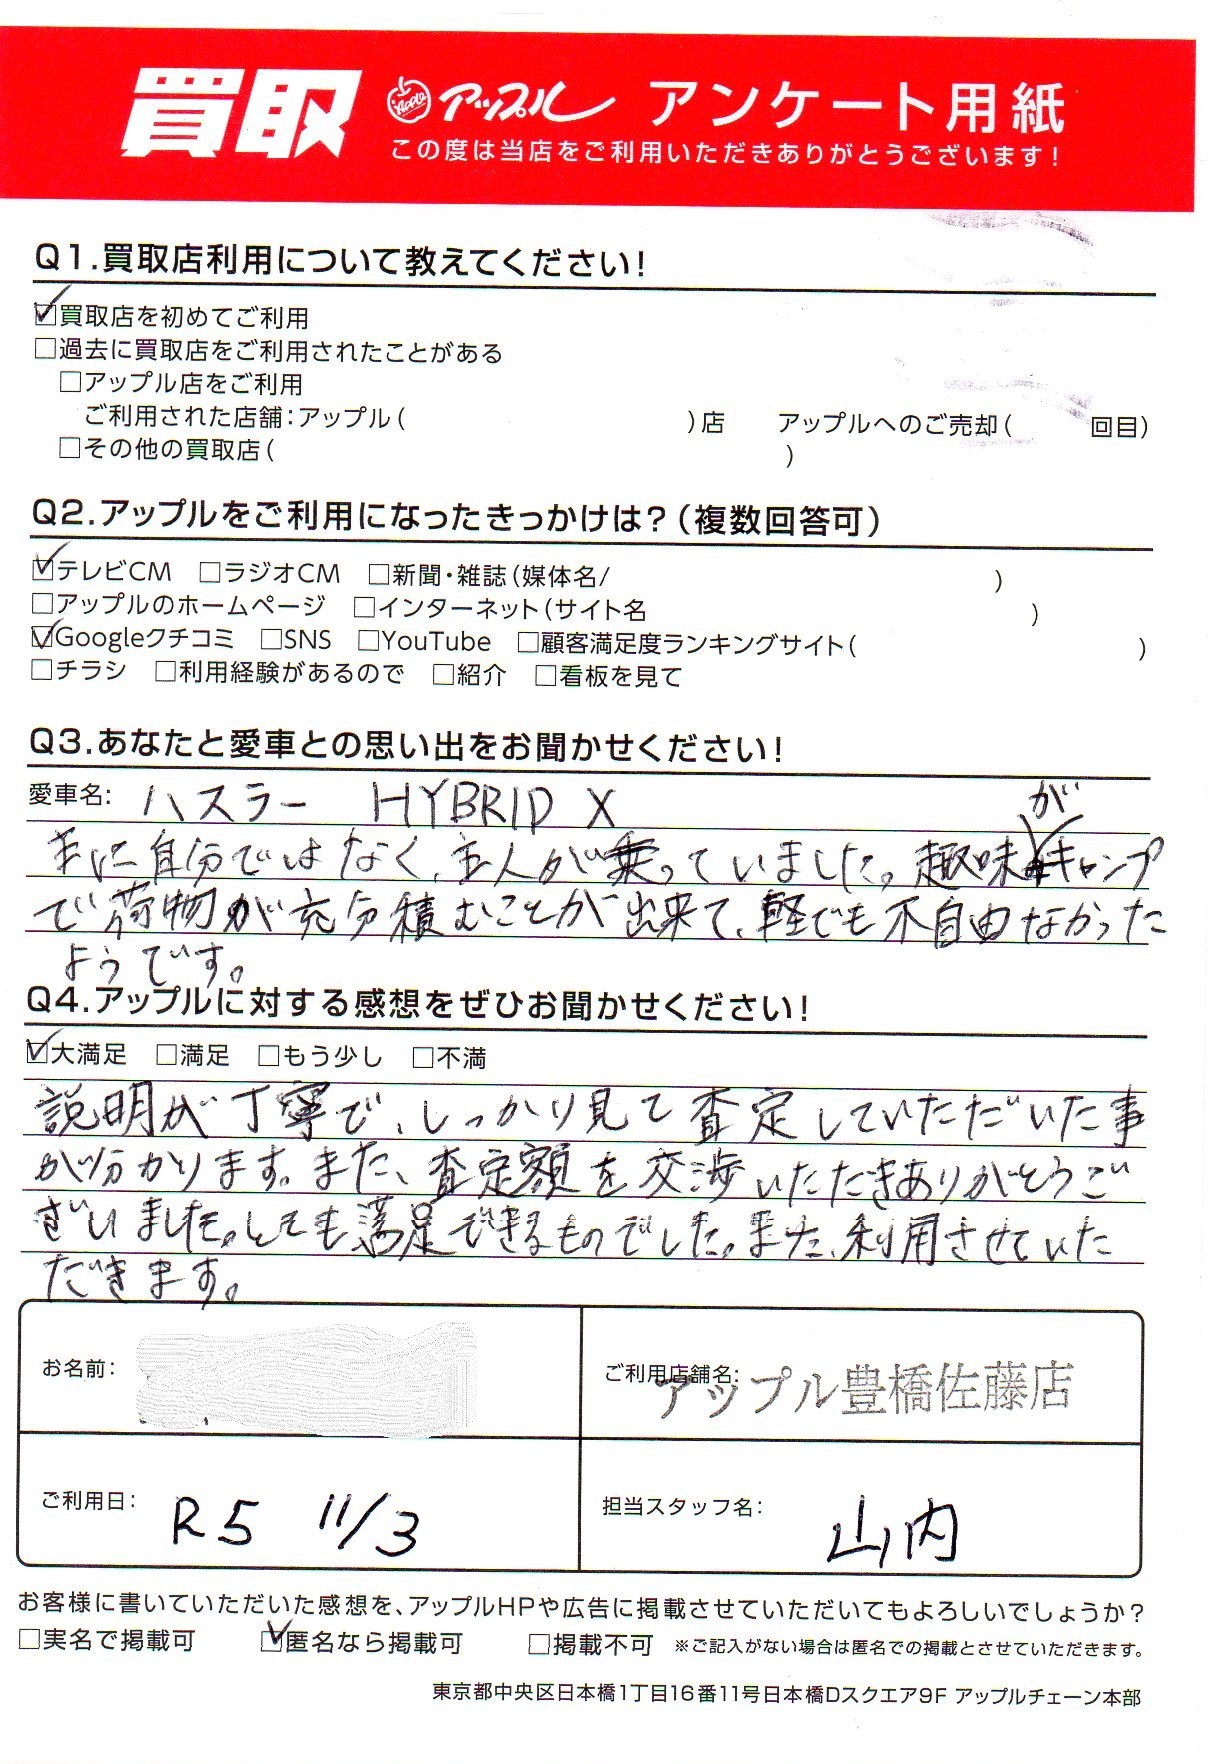 買取 Apple アップル アンケート用紙
この度は当店をご利用いただきありがとうございます!
Q1.買取店利用について教えてください!
☑買取店を初めてご利用
□過去に買取店をご利用されたことがある
□アップル店をご利用
ご利用された店舗:アップル( )店 アップルへのご売却( 回目)
□その他の買取店( )
Q2.アップルをご利用になったきっかけは?(複数回答可)
☑テレビCM □ラジオCM □新聞・雑誌(媒体名/ )
□アップルのホームページ □インターネット(サイト名 )
☑Googleクチコミ □SNS □YouTube □顧客満足度ランキングサイト( )
□チラシ □利用経験があるので □紹介 □看板を見て
Q3.あなたと愛車との思い出をお聞かせください!
愛車名: ハスラー HYBRID X
主に自分ではなく、主人が乗っていました。趣味がキャンプ
で荷物が充分積むことが出来て、軽でも不自由なかった
ようです。
Q4.アップルに対する感想をぜひお聞かせください!
☑大満足 □満足 □もう少し □不満
説明が丁寧で、しっかり見て査定していただいた事
が分かります。また、査定額を交渉いただきありがとうご
ざいました。とても満足できるものでした。また、利用させていた
だきます。
お名前:
ご利用店舗名: アップル豊橋佐藤店
ご利用日: R5 11/3
担当スタッフ名: 山内
お客様に書いていただいた感想を、アップルHPや広告に掲載させていただいてもよろしいでしょうか?
□実名で掲載可 ☑匿名なら掲載可 □掲載不可 ※ご記入がない場合は匿名での掲載とさせていただきます。
東京都中央区日本橋1丁目16番11号日本橋Dスクエア9F アップルチェーン本部